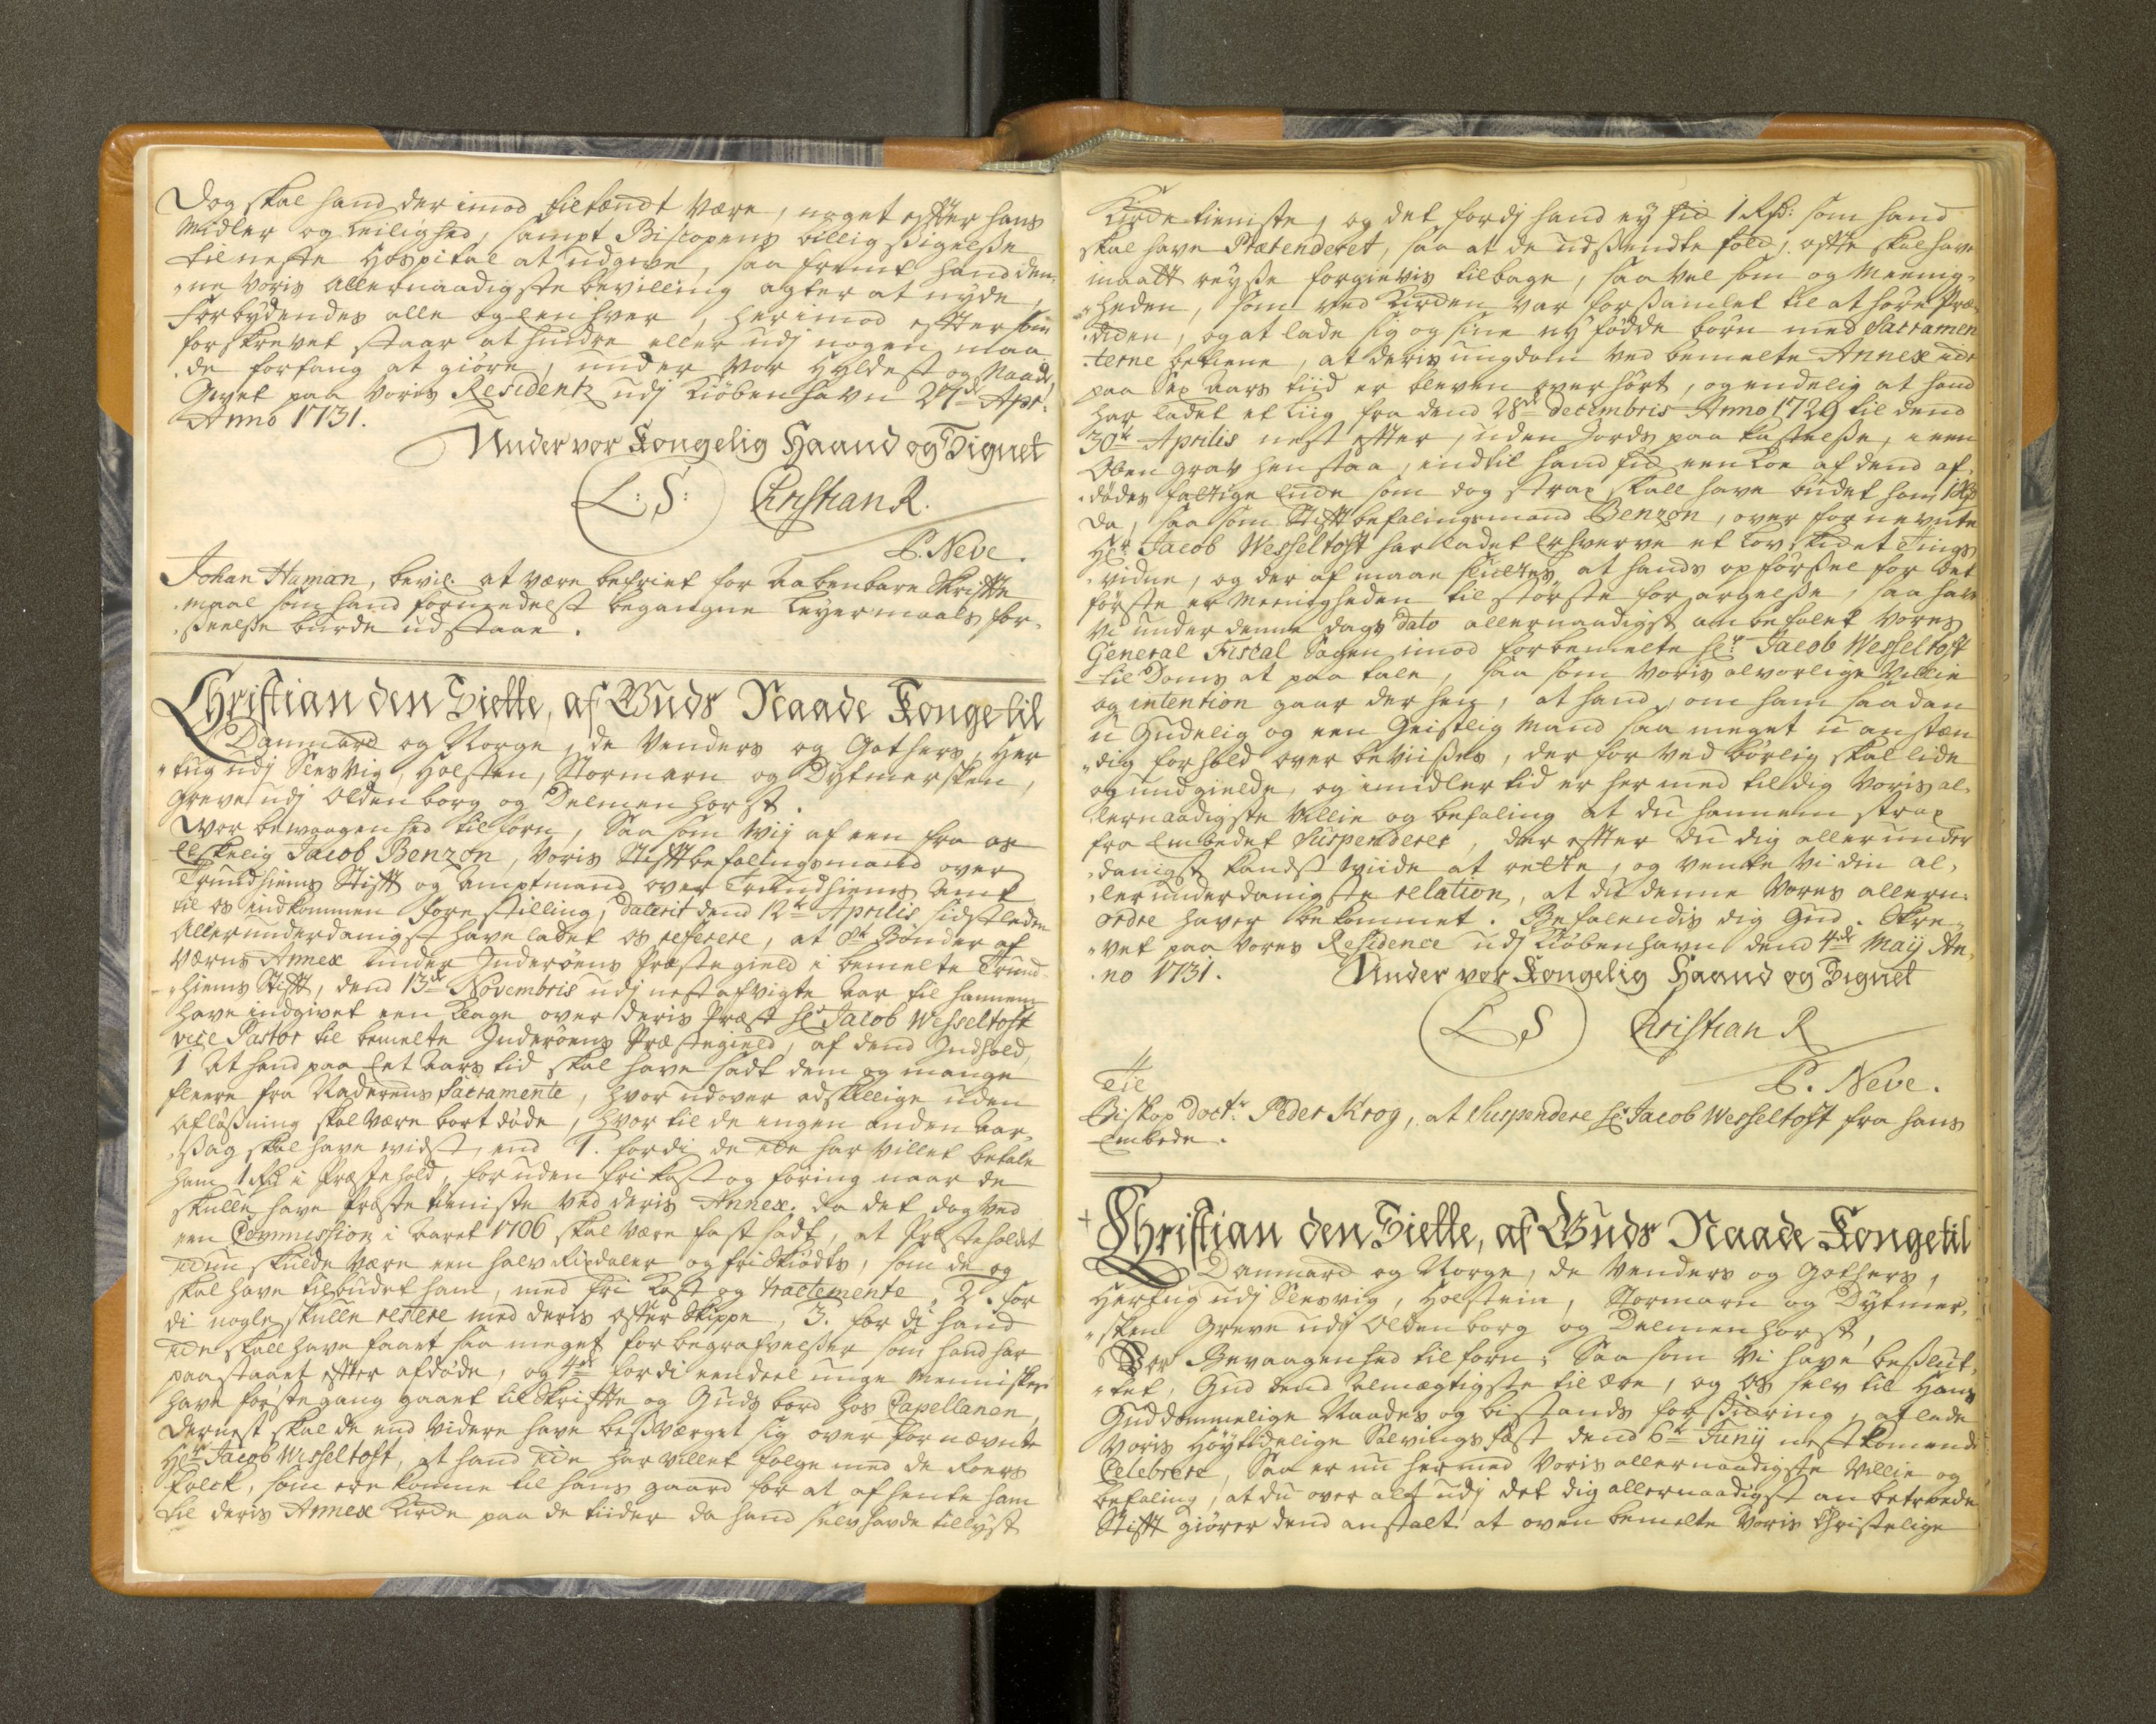 Dog skal hand der imod tiltændt være, noget effter hans
Midler og Leilighed, sampt Biscopens billig sigelße
til neste Hospital at udgive, saa fremt hand den¬
ne voris allernaadigste bevilling agter at nyde,
Forbydendes alle og een hver, herimod effter som
forskrevet staar at hindre eller udj nogen maa¬
de forfang at giøre, under vor Hyldest og Naade,
Givet paa voris Residentz udj Kiøbenhavn 27de Apr:
Anno 1731.
Under vor Kongelig Haand og Signet
L: S: Christian R.
P. Neve.
Johan Haman, bevil. at være befriet for Aabenbare Skriffte
maal som hand formedelst begangne Leyermaals for¬
seelße burde udstaae.
Christian den Siette, af Guds Naade Konge til
Danmarck og Norge, de Venders og Gothers, Her
tug udj Slesvig, Holsten, Stormarn og Dytmersken,
Greve udj Oldenborg og Delmenhorst.
Vor bewaagenhed tilforn, Saa som Wij af een fra os
Elskelig Jacob Benzon, voris Stifftbefalingsmand over
Trundhiems Stifft og Amptmand over Trundhiems Amt
til os indkommen Forestilling, daterit dend 12te Aprilis sidstleden
Allerunderdanigst have ladet os referere, at 8te Bønder af
Værns Annex under Inderøens Præstegield i bemelte Trund¬
hiems Stifft, dend 13de Novembris udj nest afvigte Aar til hannem
have indgivet een Klage over deris Præst Hr Jacob Wesseltoft
vice Pastor til bemelte Inderøens Præstegield, af dend Indhold,
1 At hand paa Eet Aars tid skal have sadt dem og mange
fleere fra Naderens Sacramente, hvor udover adskillige uden
Afløsning skal være bortdøde, hvor til de ingen anden Aar¬
sag skal have vidst, end 1. fordi de icke har villet betale
ham 1 Rd i Præstehold, foruden fri kost og foring naar de
skulle have Præste tieniste ved deris Annex, da det dog ved
een Commission i Aaret 1706 skal være fast sadt, at Præsteholdet
ickun skulde være een halv Rixdaler og fri skiødts, som de og
skal have tilbudet ham, med fri Kost og tractemente. 2. for
di nogle skulle restere med deris offter Skippe, 3. for di hand
icke skall have faaet saa meget for begrafvelßer som hand har
paastaaet effter afdøde, og 4de fordi eendeel unge Mennisker
have første gang gaaet til Skriffte og Guds bord hos Capellanen,
Dernest skal de end videre have beßverget sig over fornævnte
Hr Jacob Wesseltoft, at hand icke har villet følge med de Roers
Folck, som ere komne til hans gaard for at afhente ham
til deris Annex Kircke paa de tiider da hand selv havde tillyst
Kircketieniste, og det fordj hand ey fick 1 Rd: som hand
skal have Prætenderet, saa at de udsendte folck offte skal have
maatt reyße forgievis tilbage, saa vel som og Meenig¬
heden, som ved Kircken var forsamlet til at høre Præ¬
diken, og at lade sig og sine ny fødde børn med Sacramen
terne betiene, at deris ungdom ved bemelte Annex icke
paa Sex Aars tiid er bleven overhørt, og endelig at hand
har ladet et Liig fra dend 28de Decembris Anno 1729 til dend
30te Aprilis nest effter, uden Jords paa kastelße, i een
Oben grav henstaa, indtil hand fick een Koe af dend af¬
dødes fattige Encke som dog strax skall have budet ham 1 Rd
Da, saa som Stifftbefalingsmand Benzon, over fornevnte
Hr Jacob Wesseltoft har ladet Erhverve et Lov lidet Tings
vidne, og der af maae sluttes, at hands opførsel for det
første er Meenigheden til største forargelße, saa have
Vi under denne dags dato allernaadigst anbefalet vores
General Fiscal Sagen imod forbemelte Hr Jacob Wesseltoft
til Doms at paa tale, saa som voris alvorlige Villie
og intention gaar der hen, at hand, om ham saadan
u Gudelig og een Geistlig Mand saa meget u anstæn
dig forhold over bevißes, der for ved børlig skal lide
og undgielde, og imidlertid er her med til dig voris al¬
lernaadigste Villie og befaling at du hannem strax
fra Embedet Suspenderer, der effter du dig allerunder
danigst kandst wiide at rette, og vente vi din al¬
lerunderdanigste relation, at du denne vores allern:
ordre haver bekommet. Befalendis dig Gud. Skre¬
vet paa vores Residence udj Kiøbenhavn dend 4de Maij An¬
no 1731.
Under vor Kongelig Haand og Signet
L S Christian R
P. Neve.
Til
Biskop Doctr Peder Krog, at Suspendere Hr Jacob Wesseltoft fra hans
Embede.
+ Christian den Siette, af Guds Naade Konge til
Danmarck og Norge, de Venders og Gothers,
Hertug udj Slesvig, Holstein, Stormarn og Dytmer¬
sken Greve udj Oldenborg og Delmenhorst,
Vor Bevaagenhed tilforn; Saa som Vi have beßlut¬
tet, Gud dend Almægtigste til ære, og os selv til Hans
Guddommelige Naades og bistands forßickring, at lade
voris Høytidelige Salvings fæst dend 6te Junij nestkomende
Celebrere, Saa er nu hermed voris allernaadigste Villie og
befaling, at du over alt udj det dig allernaadigst anbetroede
Stifft giører dend anstalt at oven bemelte voris Christelige